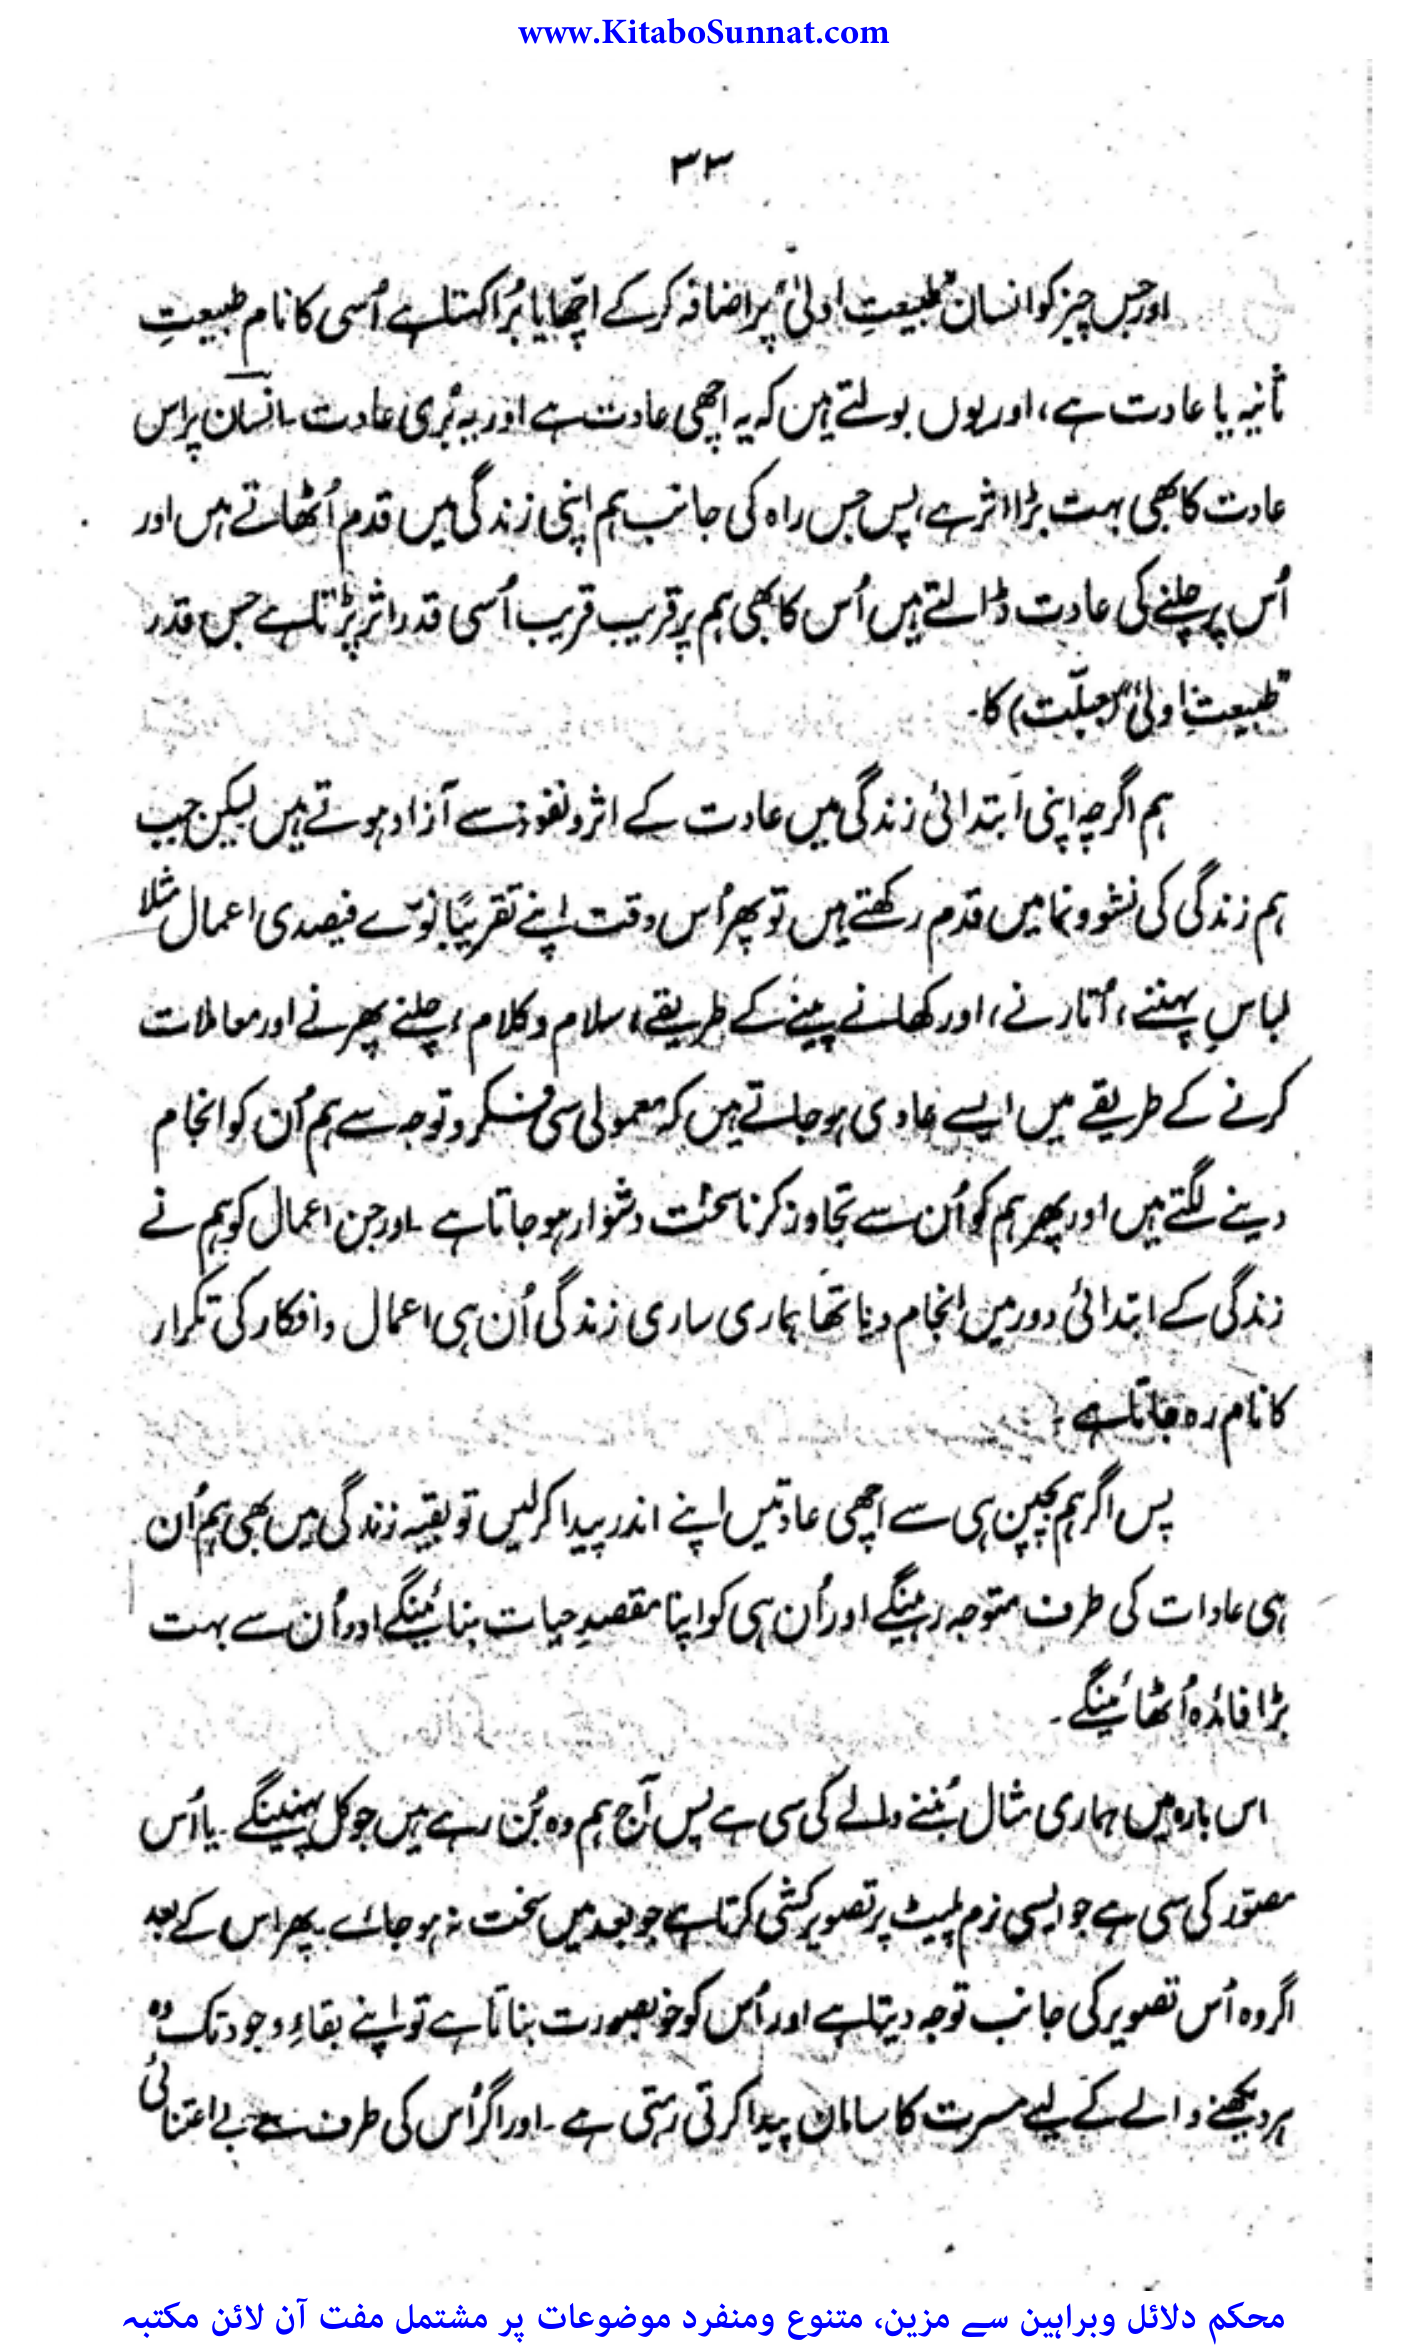 www.KitaboSunnat.com
۳۳
اور جس چیز کو انسان "طبیعتِ اولیٰ" پر اضافہ کر کے اچھا یا بُرا کہتا ہے اُسی کا نام طبیعتِ
ثانیہ یا عادت ہے، اور یوں بولتے ہیں کہ یہ اچھی عادت ہے اور یہ بُری عادت۔ انسان پر اس
عادت کا بھی بہت بڑا اثر ہے، پس جس راہ کی جانب ہم اپنی زندگی میں قدم اُٹھاتے ہیں اور
اُس پر چلنے کی عادت ڈالتے ہیں اُس کا بھی ہم پر قریب قریب اُسی قدر اثر پڑتا ہے جس قدر
"طبیعتِ اولیٰ" (جبلّت) کا۔
ہم اگرچہ اپنی ابتدائی زندگی میں عادت کے اثر و نفوذ سے آزاد ہوتے ہیں لیکن جب
ہم زندگی کی نشوونما میں قدم رکھتے ہیں تو پھر اُس وقت اپنے تقریبًا نوّے فیصدی اعمال مثلا
لباس پہننے، اُتارنے، اور کھانے پینے کے طریقے، سلام و کلام، چلنے پھرنے اور معاملات
کرنے کے طریقے میں ایسے عادی ہو جاتے ہیں کہ معمولی سی فکر و توجہ سے ہم اُن کو انجام
دینے لگتے ہیں اور پھر ہم کو اُن سے تجاوز کرنا سخت دشوار ہو جاتا ہے۔ اور جن اعمال کو ہم نے
زندگی کے ابتدائی دور میں انجام دیا تھا ہماری ساری زندگی اُن ہی اعمال و افکار کی تکرار
کا نام رہ جاتا ہے۔
پس اگر ہم بچپن ہی سے اچھی عادتیں اپنے اندر پیدا کر لیں تو بقیہ زندگی میں بھی ہم اُن
ہی عادات کی طرف متوجہ رہینگے اور اُن ہی کو اپنا مقصدِ حیات بنائینگے اور اُن سے بہت
بڑا فائدہ اُٹھائینگے۔
اس بارہ میں ہماری مثال بُننے والے کی سی ہے پس آج ہم وہ بُن رہے ہیں جو کل پہنینگے۔ یا اُس
مصوّر کی سی ہے جو ایسی نرم پلیٹ پر تصویر کشی کرتا ہے جو بعد میں سخت نہ ہو جائے۔ پھر اس کے بعد
اگر وہ اُس تصویر کی جانب توجہ دیتا ہے اور اُس کو خوبصورت بناتا ہے تو اپنے بقاءِ وجود تک وہ
ہر دیکھنے والے کے لیے مسرت کا سامان پیدا کرتی رہتی ہے۔ اور اگر اُس کی طرف سے بے اعتنائی
محکم دلائل وبراہین سے مزین، متنوع ومنفرد موضوعات پر مشتمل مفت آن لائن مکتبہ